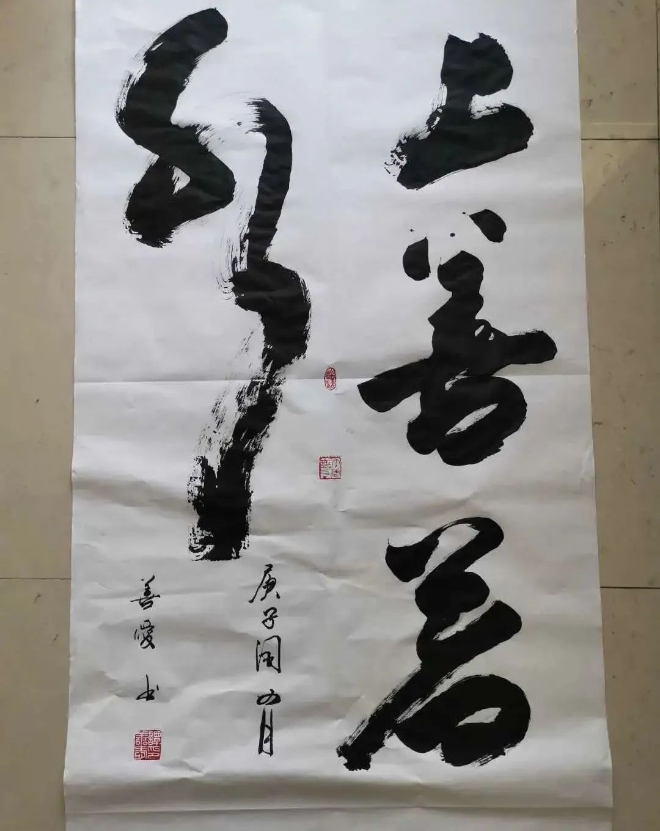 上善若
水
庚子闰四月
善愛书